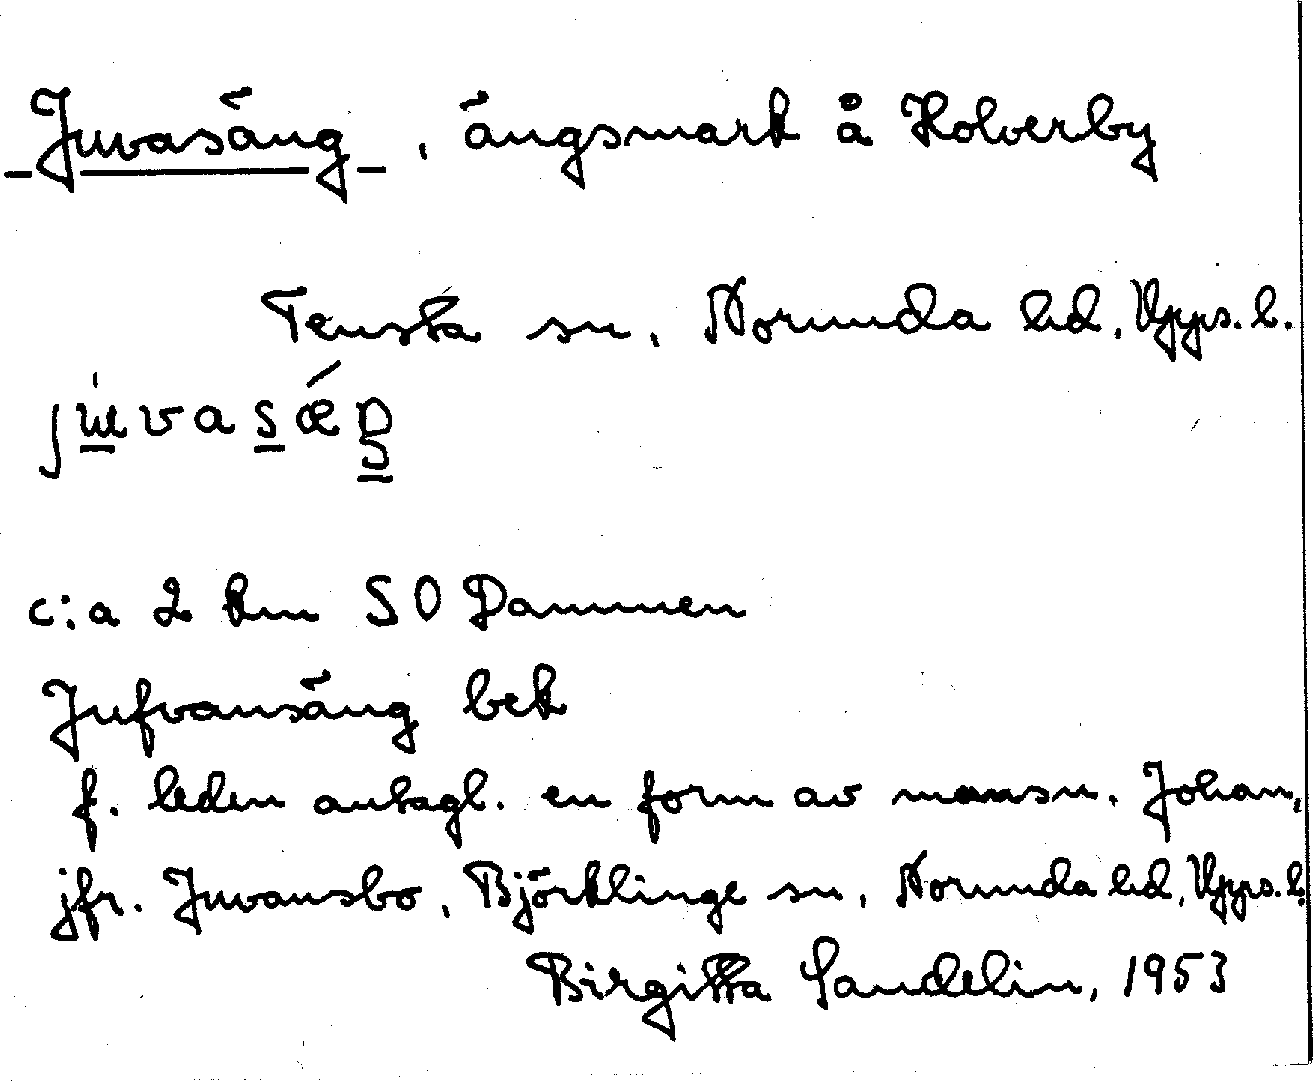 Juvasäng, ängsmark å Holverby
Tensta sn, Norunda hd, Upps. l.
c:a 2 km SO Dammen
Jufvansäng bek
f. leden antagl. en form av mansn. Johan,
jfr. Juvansbo, Björklinge sn, Norunda hd, Upps. l.
Birgitta Sandelin, 1953